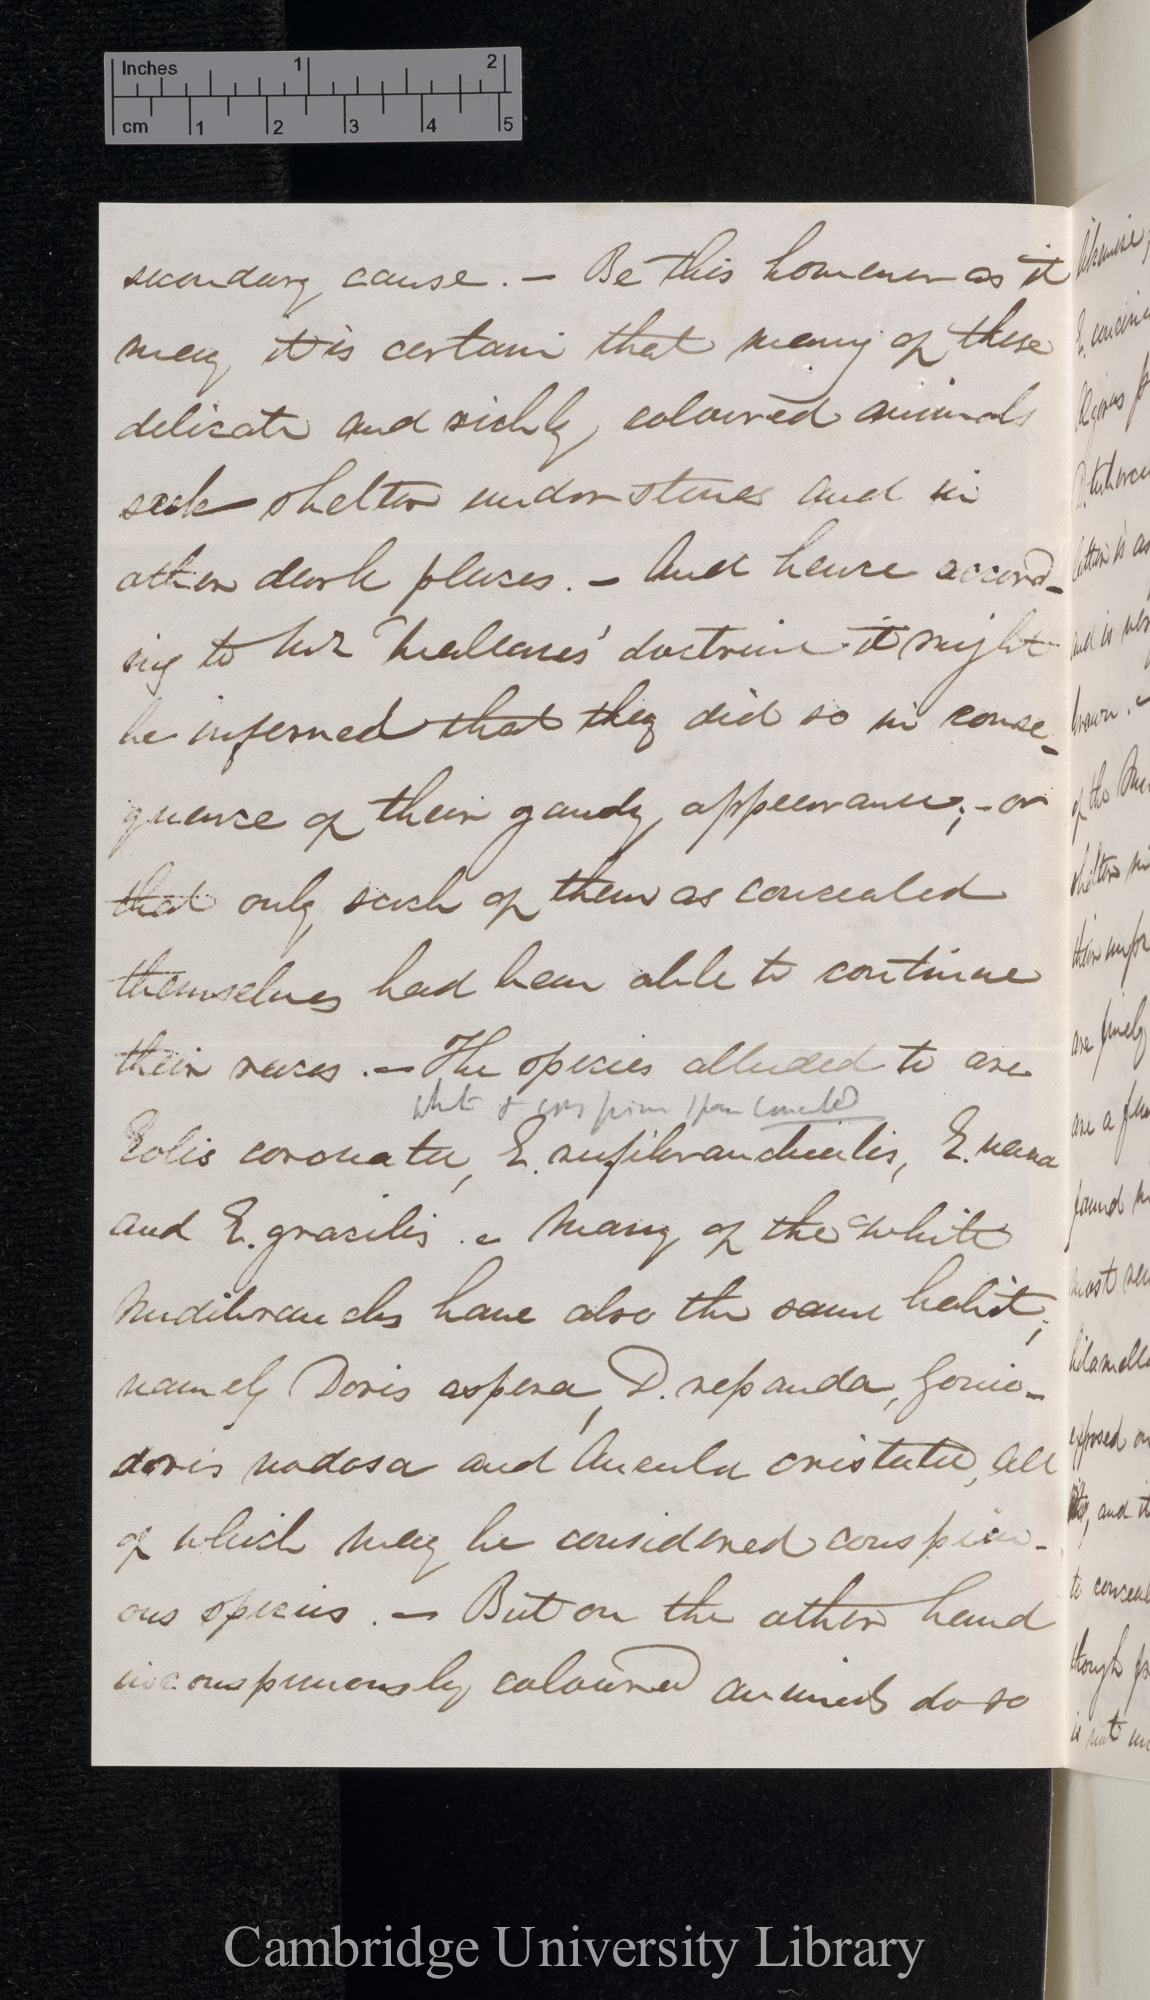 Inches 1 2
cm 1 2 3 4 5
secondary cause. – Be this however as it
may it is certain that many of these
delicate and richly coloured animals
seek shelter under stones and in
other dark places. – And hence accord-
ing to Mr Wallace's doctrine it might
be inferred that they did so in conse-
quence of their gaudy appearance; – or
that only such of them as concealed
themselves had been able to continue
their races. – The species alluded to are
white & conspicuous concealed
Eolis coronata, E. rufibranchialis, E. nana
and E. gracilis. – Many of the white
Nudibranchs have also the same habit;
namely Doris aspera, D. repanda, Gonio-
doris nodosa and Ancula cristata, all
of which may be considered conspicu-
ous species. – But on the other hand
inconspicuously coloured animals do so
likewise
of the
shelter
are finely
found
exposed on
and it
to conceal
though
is not
Cambridge University Library